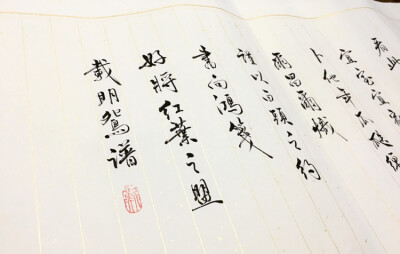 看此
宜室宜家
卜他年瓜瓞綿
爾昌爾熾
謹以白頭之約
書向鴻箋
好將紅葉之盟
載明鴛譜